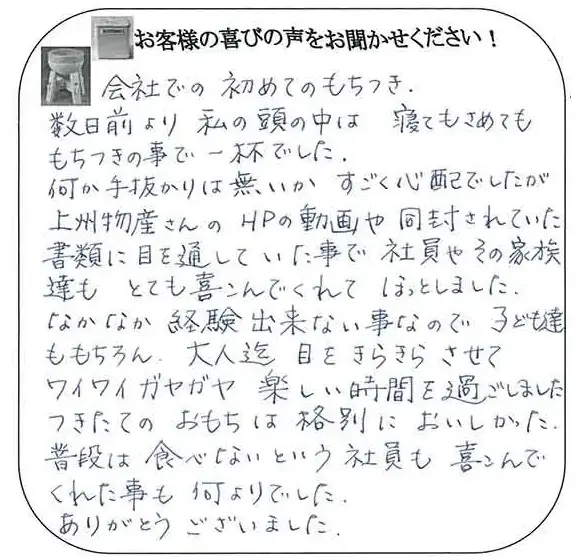 お客様の喜びの声をお聞かせください！
会社での 初めてのもちつき.
数日前より 私の頭の中は 寝てもさめても
もちつきの事で一杯でした.
何か手抜かりは無いか すごく心配でしたが
上州物産さんの HPの動画や 同封されていた
書類に目を通していた事で 社員やその家族
達も とても喜こんでくれて ほっとしました.
なかなか 経験出来ない事なので 子ども達
ももちろん. 大人迄 目をきらきら させて
ワイワイガヤガヤ 楽しい時間を過ごしました
つきたての おもちは 格別に おいしかった.
普段は 食べないという 社員も 喜こんで
くれた事も 何よりでした.
ありがとう ございました.